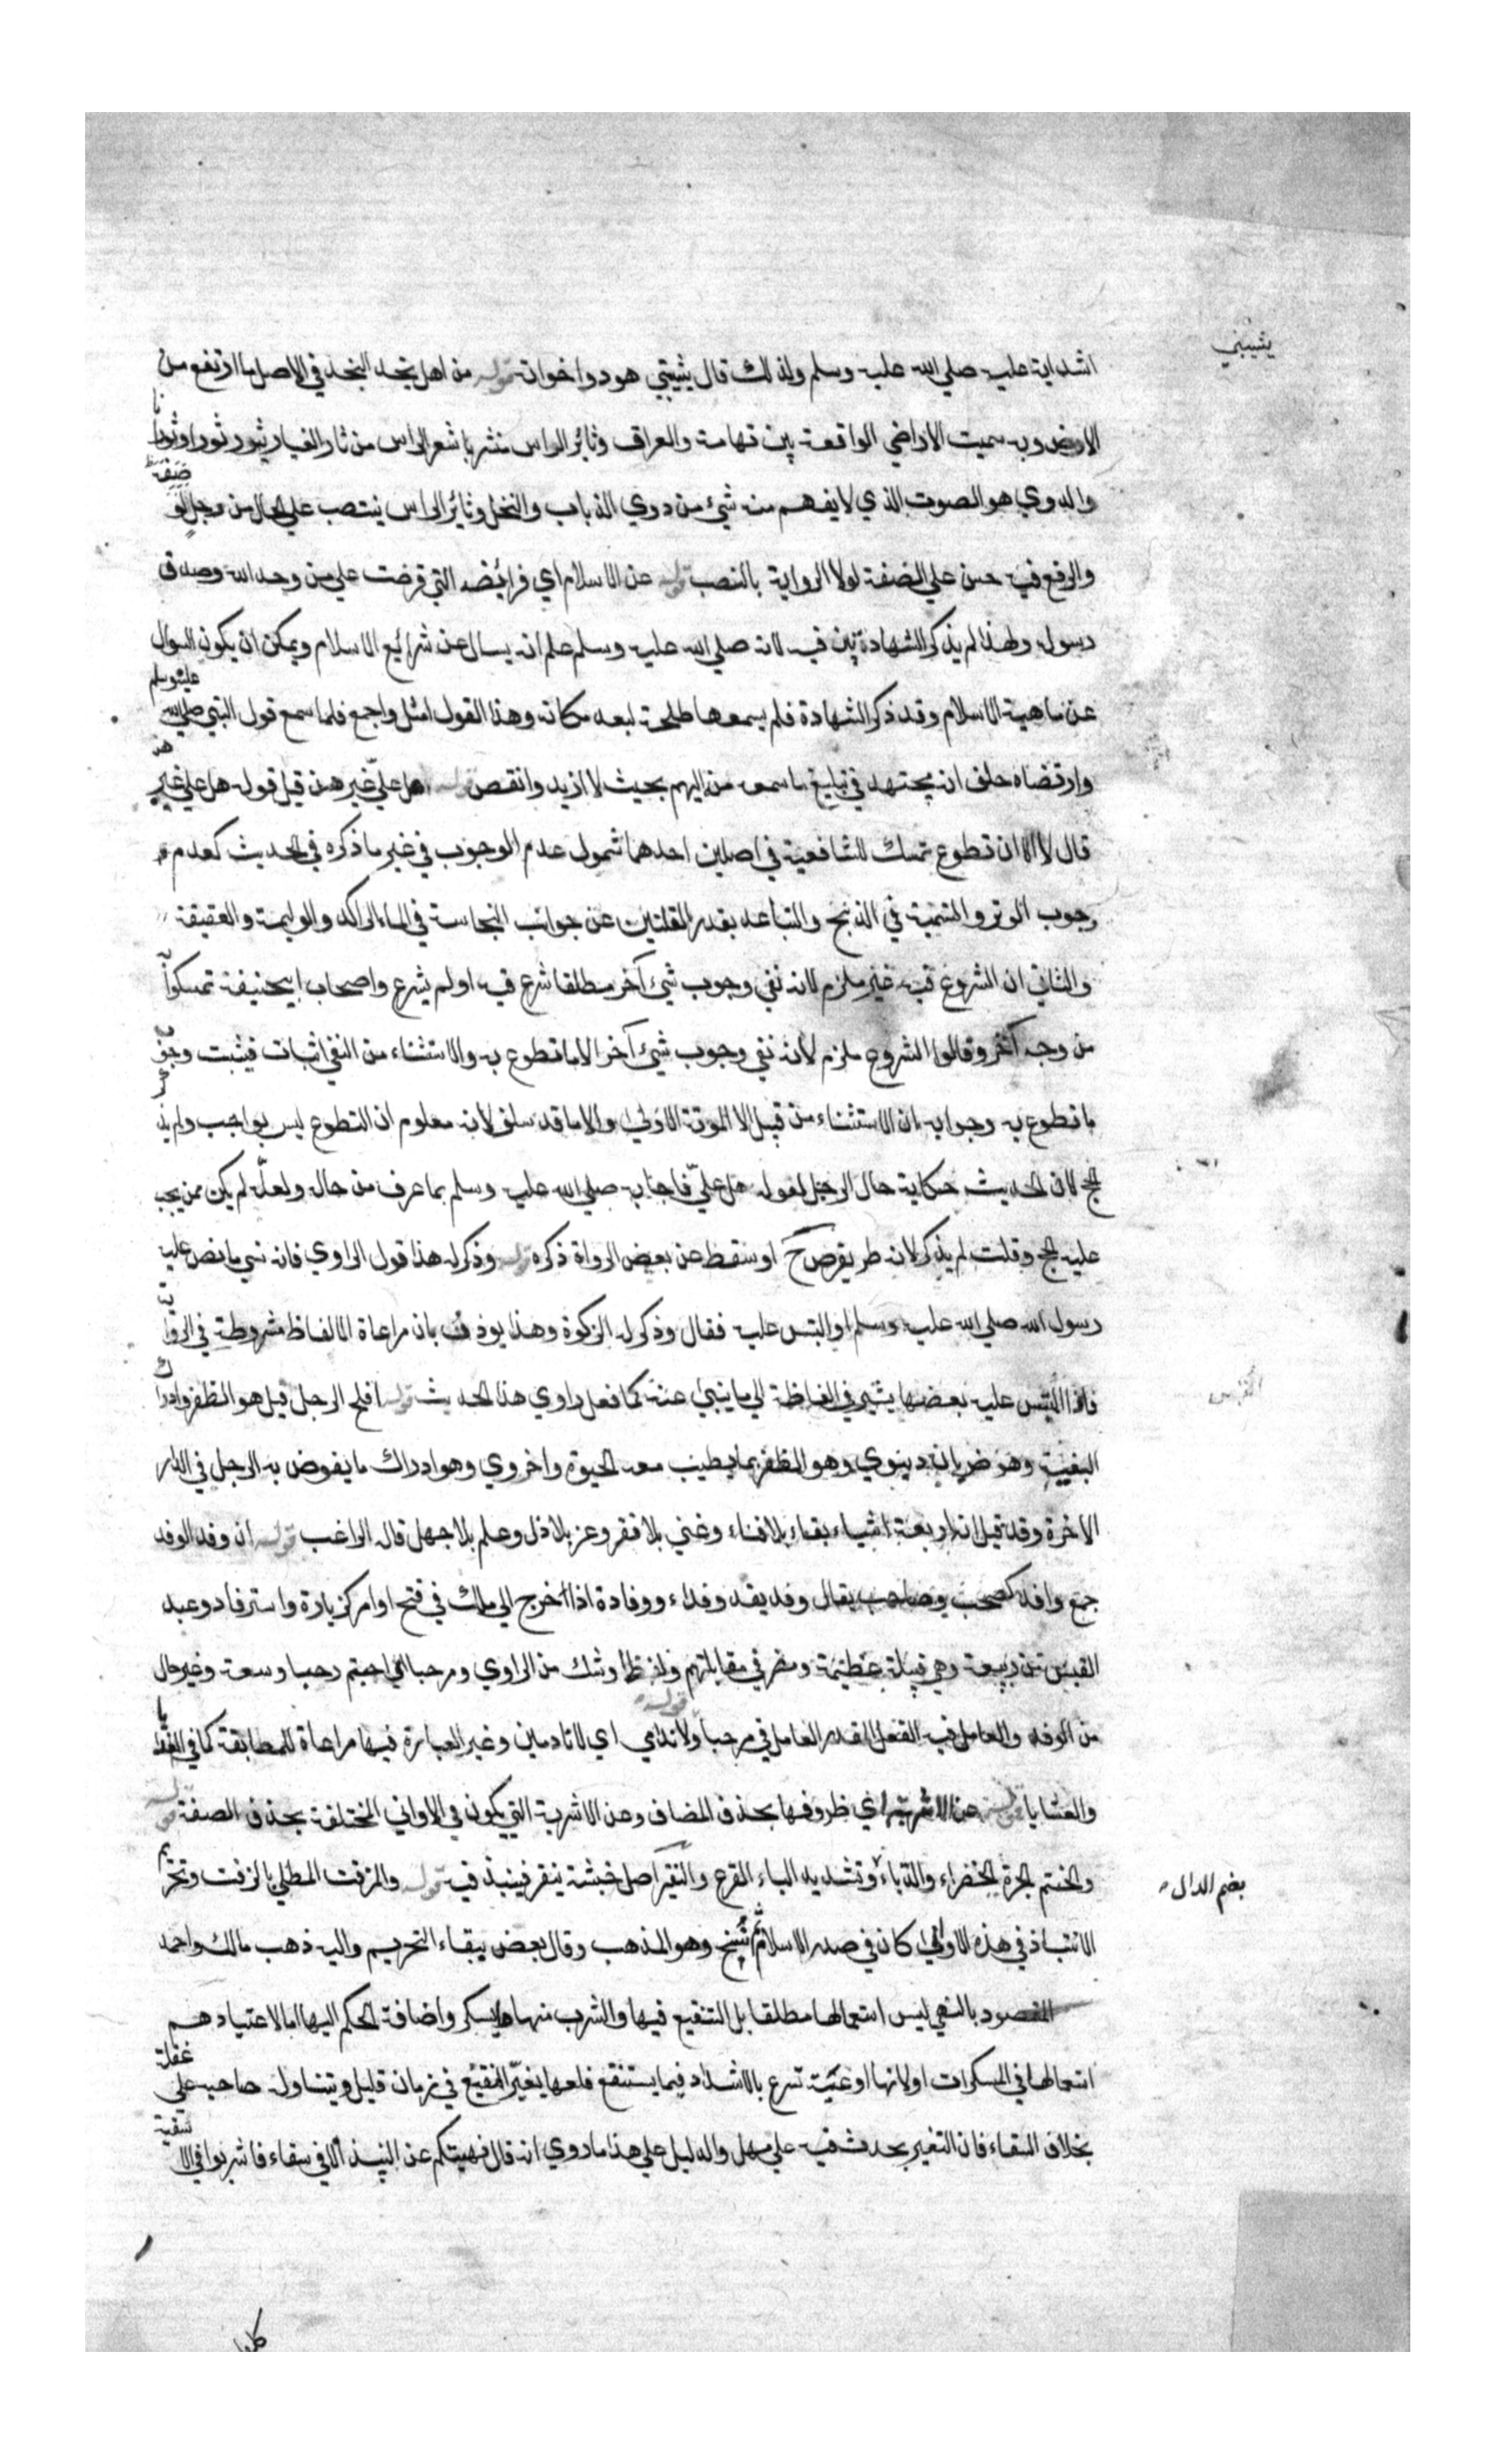 يشيبني
اشد اية عليه صلي الله عليه وسلم ولذلك قال شيبتني هود واخواته قوله من اهل نجد النجد في الاصل ما ارتفع من
الارض وبه سميت الاراضي الواقعة بين تهامة والعراق وثائر الراس منتشر شعر الراس من ثار الغبار يثور ثورا وثورانا
والدوي هو الصوت الذي لا يفهم منه شئ من دوي الذباب والنخل وثائر الراس ينتصب علي الحال من رجل لوصفه
والرفع فيه حسن علي الصفة لولا الرواية بالنصب قوله عن الاسلام اي فرائضه التي فرضت علي من وحد الله وصدق
رسوله ولهذا لم يذكر الشهادتين فيه لانه صلي الله عليه وسلم علم انه يسال عن شرائع الاسلام ويمكن ان يكون السوال
عن ماهية الاسلام وقد ذكر الشهادة فلم يسمعها طلحة لبعد مكانه وهذا القول امثل واجمع فلما سمع قول النبي صلي الله عليه وسلم
وارتضاه حلف ان يجتهد في تبليغ ما سمعه من اليهم بحيث لا ازيد وانقص قوله هل علي غيرهن قيل قوله هل علي غيرهن
قال لا الا ان تطوع تمسك للشافعية في اصلين احدهما شمول عدم الوجوب في غير ما ذكره في الحديث كعدم
وجوب الوتر والتسمية في الذبح والتباعد بقدر القلتين عن جوانب النجاسة في الماء الراكد والوليمة والعقيقة
والثاني ان الشروع فيه غير ملزم لانه نفي وجوب شئ آخر مطلقا شرع فيه اولم يشرع واصحاب ابيحنيفة تمسكوا به
من وجه آخر وقالوا الشروع ملزم لانه نفي وجوب شئ آخر الا ما تطوع به والاستثناء من النفي اثبات فيثبت وجوب
ما تطوع به وجوابه ان الاستثناء من قبيل الا الموتة الاولي والا ما قد سلف لانه معلوم ان التطوع ليس بواجب ولم يذكر
الحج لان الحديث حكاية حال الرجل لقوله هل علي فاجابه صلي الله عليه وسلم بما عرف من حاله ولعله لم يكن ممن يجب
عليه الحج وقلت لم يذكر لانه لم يفرض ح او سقط عن بعض الرواة ذكره قوله وذكر له هذا قول الراوي فانه نسي ما نص عليه
رسول الله صلي الله عليه وسلم او التبس عليه فقال وذكر له الزكوة وهذا يوذن بان مراعاة الالفاظ مشروطة في الرواية
فاذا التبس عليه بعضها يشير في الفاظه الي ما ينبئ عنه كما فعل راوي هذا الحديث قوله افلح الرجل قيل هو الظفر وادراك
البغية وهو ضربان دنيوي وهو الظفر بما يطيب معه الحيوة واخروي وهو ادراك ما يفوض به الرجل في الدار
الاخرة وقد قيل انه اربعة اشياء بقاء بلا فناء وغني بلا فقر وعز بلا ذل وعلم بلا جهل قاله الراغب قوله ان وفد الوفد
جمع وافد كصحب وصاحب يقال وفد يفد وفدا ووفادة اذا خرج الي ملك في فتح او امر كزيارة واسترفاد وعبد
القيس من ربيعة وهي قبيلة عظيمة ومضر في مقابلتهم ولفظ او شك من الراوي ومرحبا اي اجبتم رحبا وسعة وغير حال
من الوفد والعامل فيه الفعل المقدر العامل في مرحبا قوله ولا ندامي اي لا نادمين وغير العبارة فيها مراعاة للمطابقة كما في الغدايا
والعشايا قوله عن الاشربة اي ظروفها بحذف المضاف وعن الاشربة التي يكون في الاواني المختلفة بحذف الصفة قوله
والحنتم الجرة الخضراء والدباء وتشديد الباء القرع والنقير اصل خشبة ينقر فينبذ فيه قوله والمزفت المطلي بالزفت وتحريم
بضم الدال
الانتباذ في هذه الاواني كان في صدر الاسلام ثم نسخ وهو المذهب وقال بعض ببقاء التحريم واليه ذهب مالك واحمد
المقصود بالنهي ليس استعمالها مطلقا بل التنقيع فيها والشرب منها ما يسكر واضافة الحكم اليها اما لاعتيادهم
استعمالها في المسكرات او لانها اوعية تسرع بالاشتداد فيما يستنقع فلعلها يغير النقيع في زمان قليل ويتناوله صاحبه علي غفلة
بخلاف السقاء فان التغير يحدث فيه علي مهل والدليل علي هذا ما روي انه قال نهيتكم عن النبيذ الا في سقاء فاشربوا في الاسقية